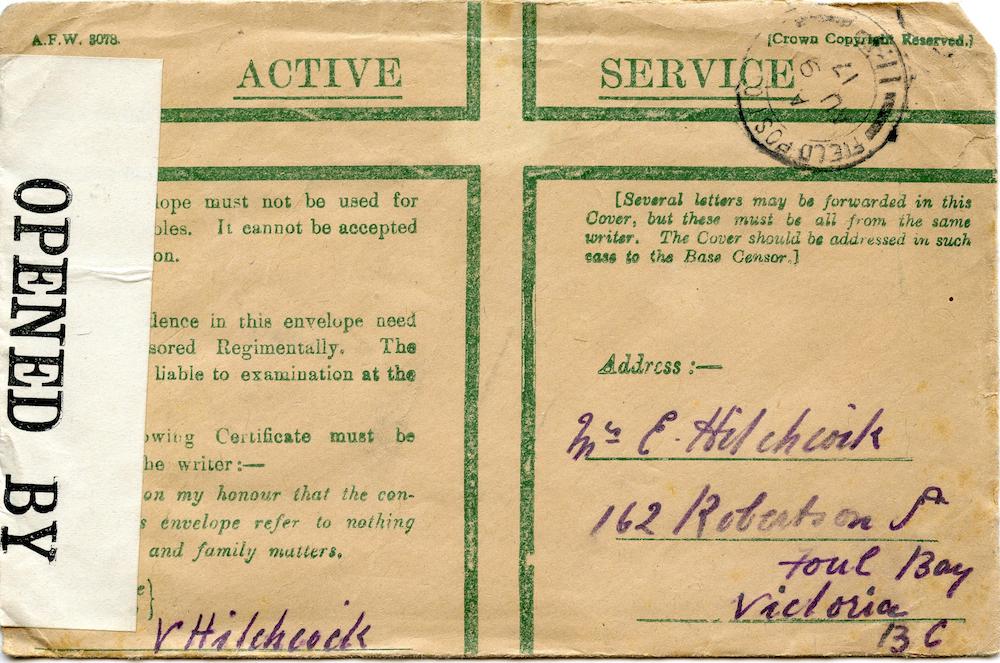 A.F.W. 3078.
[Crown Copyright Reserved.]
ACTIVE SERVICE
FIELD POST
AU
9
17
OPENED BY
lope must not be used for
bles. It cannot be accepted
on.
dence in this envelope need
sored Regimentally. The
liable to examination at the
owing Certificate must be
he writer:—
on my honour that the con-
s envelope refer to nothing
and family matters.
V Hitchcock
[Several letters may be forwarded in this
Cover, but these must be all from the same
writer. The Cover should be addressed in such
case to the Base Censor.]
Address :—
Mrs E. Hitchcock
162 Robertson St
Foul Bay
Victoria
B C